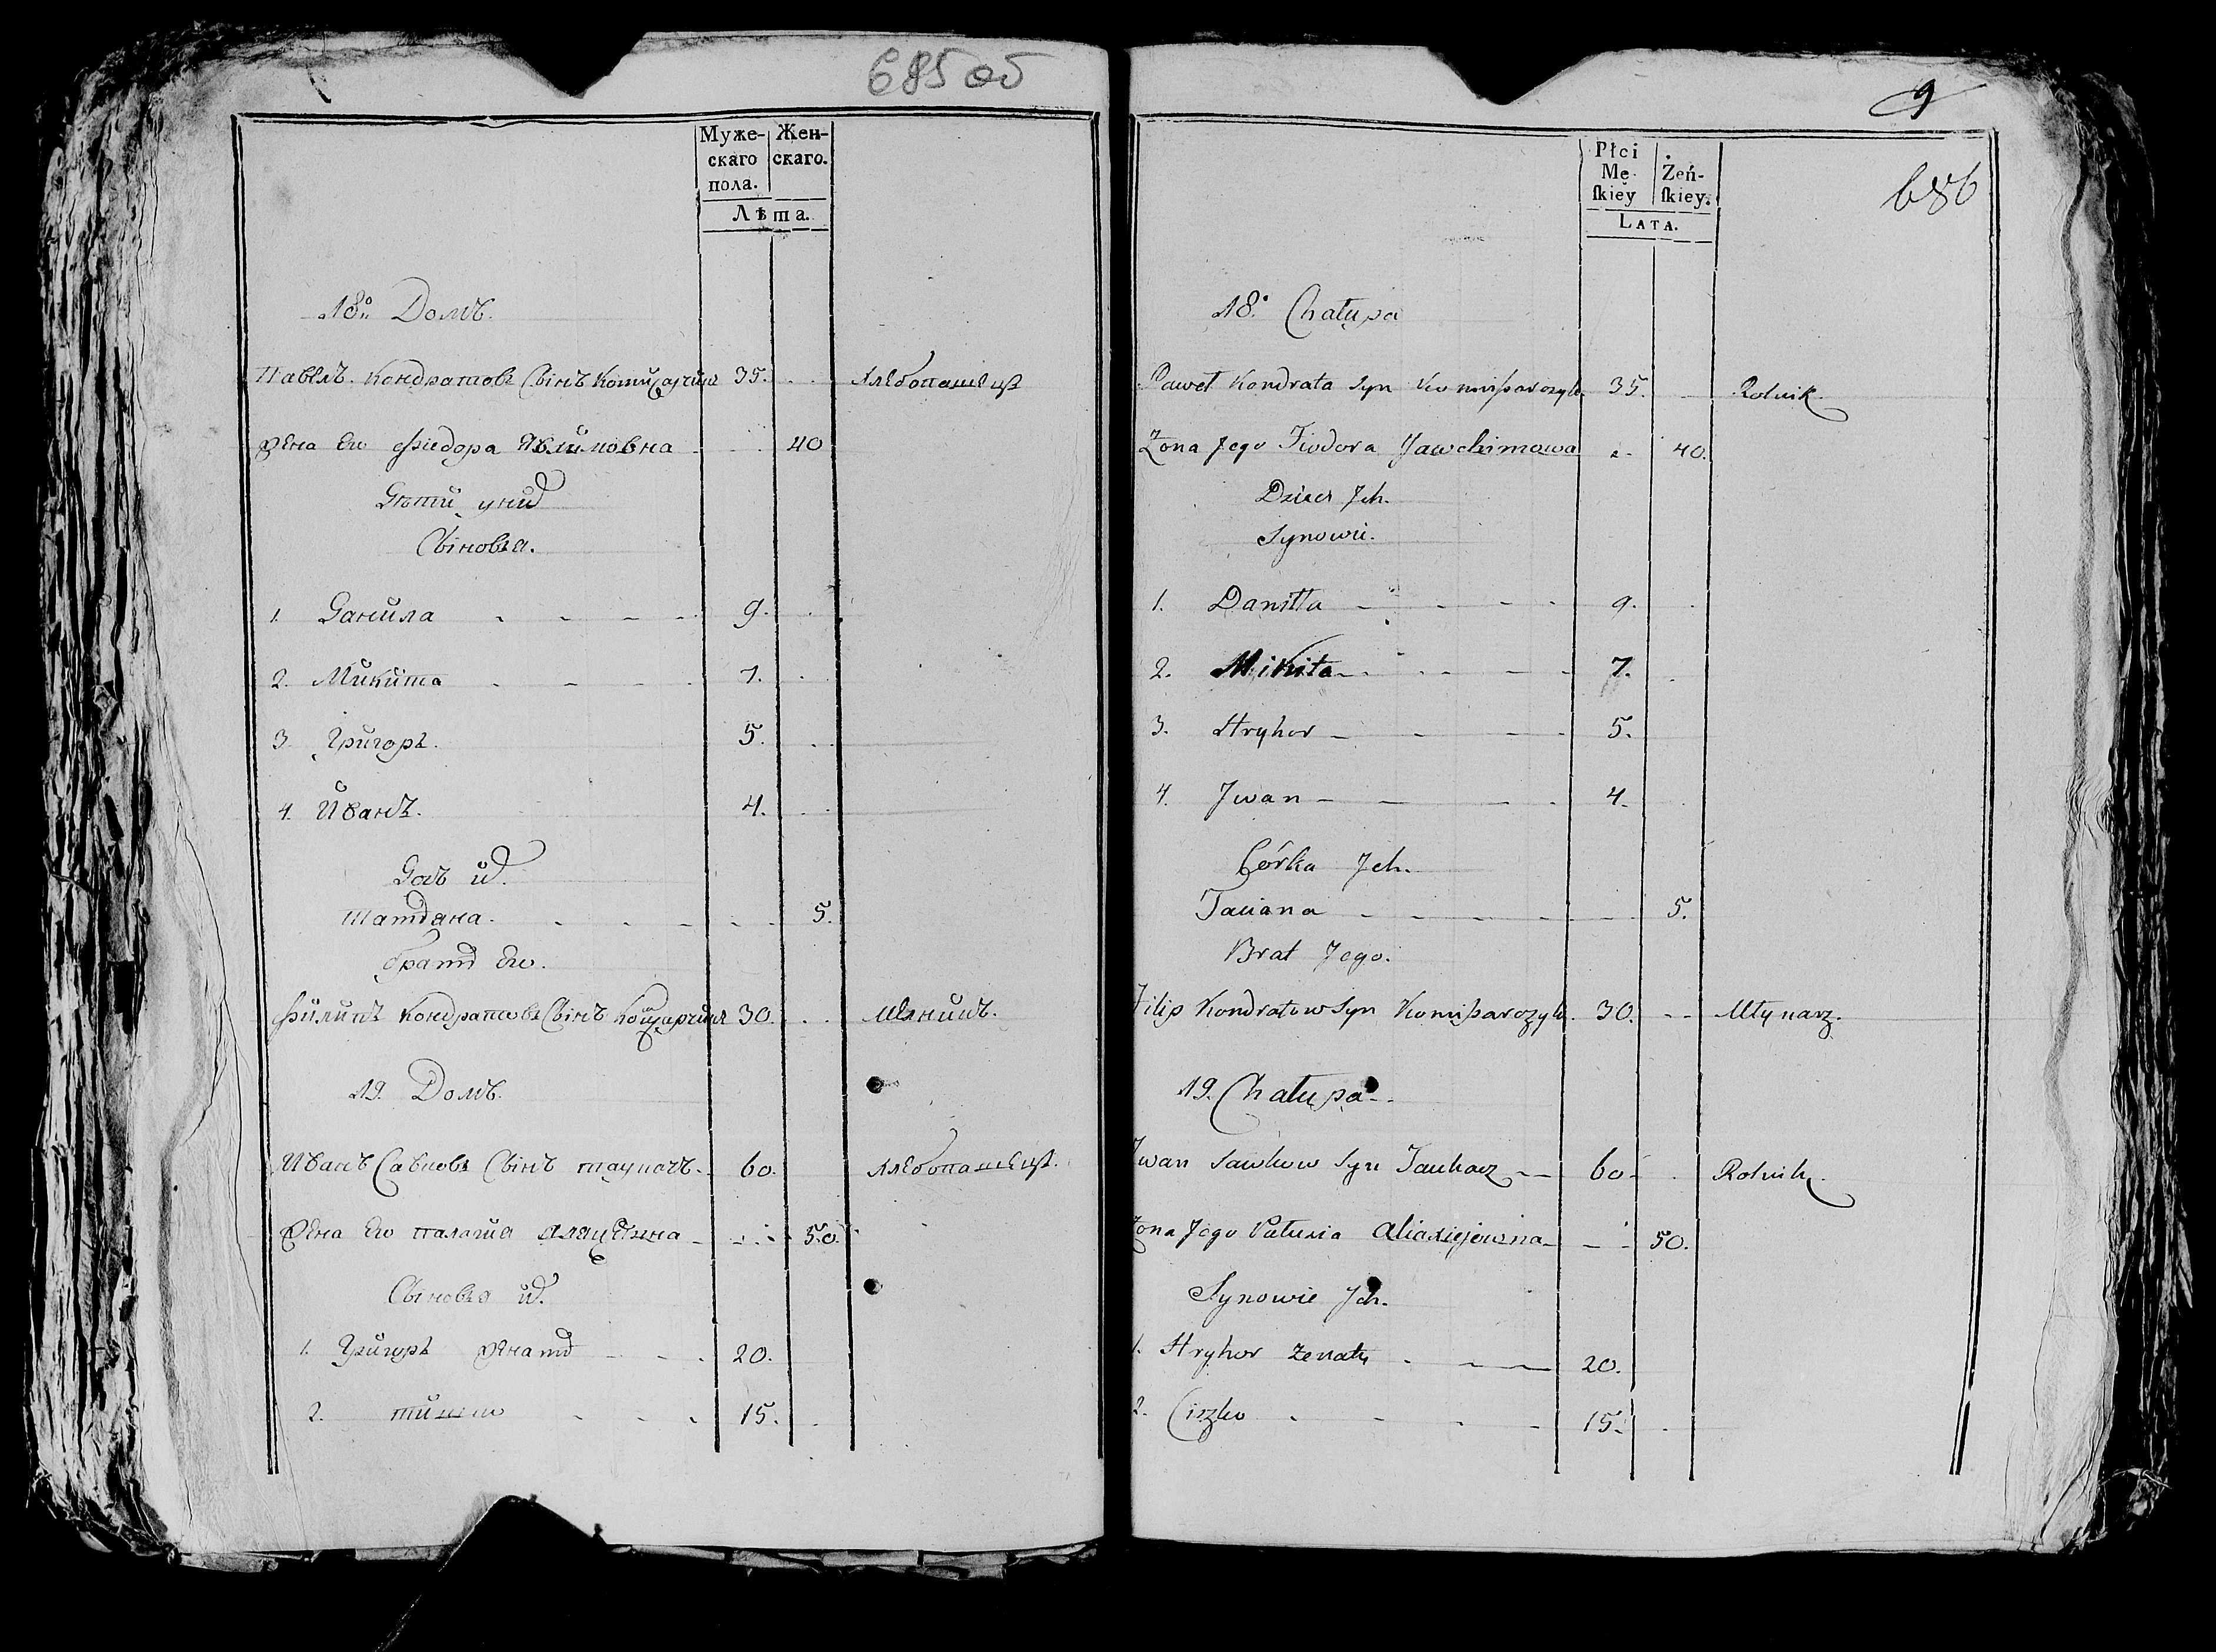 685 об
Муже-
скаго
пола.
Жен-
скаго.
Лѣта.
18. Домъ.
Павелъ Кондратовъ Сынъ 35. Хлебопашецъ
жена Его Фиедора 40
Дѣти у них
Сыновья.
1. Данила 9.
2. Микита 7.
3. Григорь. 5.
4. Иванъ. 4.
Доч их.
Татьяна. 5.
брат Его.
Филипъ Кондратовъ Сынъ 30.
19. Домъ.
Иванъ Савковъ Сынъ таукачъ. 60. Хлебопашецъ.
жена Его палагия 50.
Сыновья их.
1. Григорь женат 20.
2. тишко 15.
9
686
Płci
Mę-
ſkiey
Żeń-
ſkiey.
LATA.
18. Chałupa
Paweł Kondrata Syn Komisarczyk 35. Rolnik.
Żona Jego Fiodora Jawchimowa 40.
Dzieci Jch.
Synowie.
1. Daniłła 9.
2. Mikita 7.
3. Hryhor 5.
4. Jwan 4.
Córka Jch.
Taciana 5.
Brat Jego.
Filip Kondratow Syn Komisarczyk. 30. Młynarz.
19. Chałupa
Jwan Sawkow Syn Taukacz 60 Rolnik.
Żona Jego 50.
Synowie Jch.
1. Hryhor żenaty 20.
2. Ciszko 15.